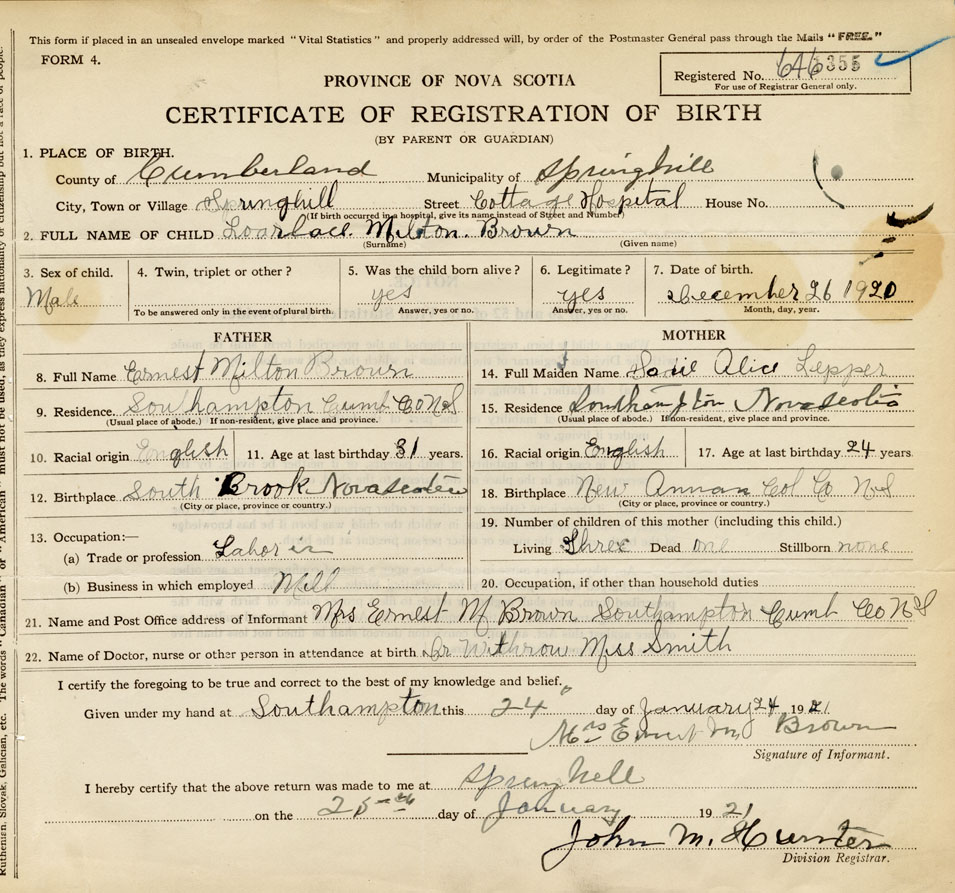 This form if placed in an unsealed envelope marked "Vital Statistics" and properly addressed will, by order of the Postmaster General pass through the Mails "FREE."
FORM 4.
Registered No. 646355
For use of Registrar General only.
PROVINCE OF NOVA SCOTIA
CERTIFICATE OF REGISTRATION OF BIRTH
(BY PARENT OR GUARDIAN)
1. PLACE OF BIRTH.
County of Cumberland Municipality of Springhill
City, Town or Village Springhill Street Cottage Hospital House No.
(If birth occurred in a hospital, give its name instead of Street and Number)
2. FULL NAME OF CHILD Milton. Brown
(Surname) (Given name)
3. Sex of child. 4. Twin, triplet or other? 5. Was the child born alive? 6. Legitimate? 7. Date of birth.
Male yes yes December 26 1920
To be answered only in the event of plural birth. Answer, yes or no. Answer, yes or no. Month, day, year.
FATHER
8. Full Name Ernest Milton Brown
9. Residence. Southampton Cumb Co N S
(Usual place of abode.) If non-resident, give place and province.
10. Racial origin English 11. Age at last birthday 31 years.
12. Birthplace South Brook Nova Scotia
(City or place, province or country.)
13. Occupation:—
(a) Trade or profession Laborer
(b) Business in which employed Mill
MOTHER
14. Full Maiden Name Sadie Alice Lepper
15. Residence Southampton Nova Scotia
(Usual place of abode.) If non-resident, give place and province.
16. Racial origin English 17. Age at last birthday 24 years.
18. Birthplace New Annan Col Co N S
(City or place, province or country.)
19. Number of children of this mother (including this child.)
Living Three Dead one Stillborn none
20. Occupation, if other than household duties
21. Name and Post Office address of Informant Mrs Ernest M Brown Southampton Cumb Co N S
22. Name of Doctor, nurse or other person in attendance at birth Dr Withrow Miss Smith
I certify the foregoing to be true and correct to the best of my knowledge and belief.
Given under my hand at Southampton this 24 day of January 24 1921
Mrs Ernest M. Brown
Signature of Informant.
I hereby certify that the above return was made to me at Springhill
on the 25th day of January 1921
John M. Hunter
Division Registrar.